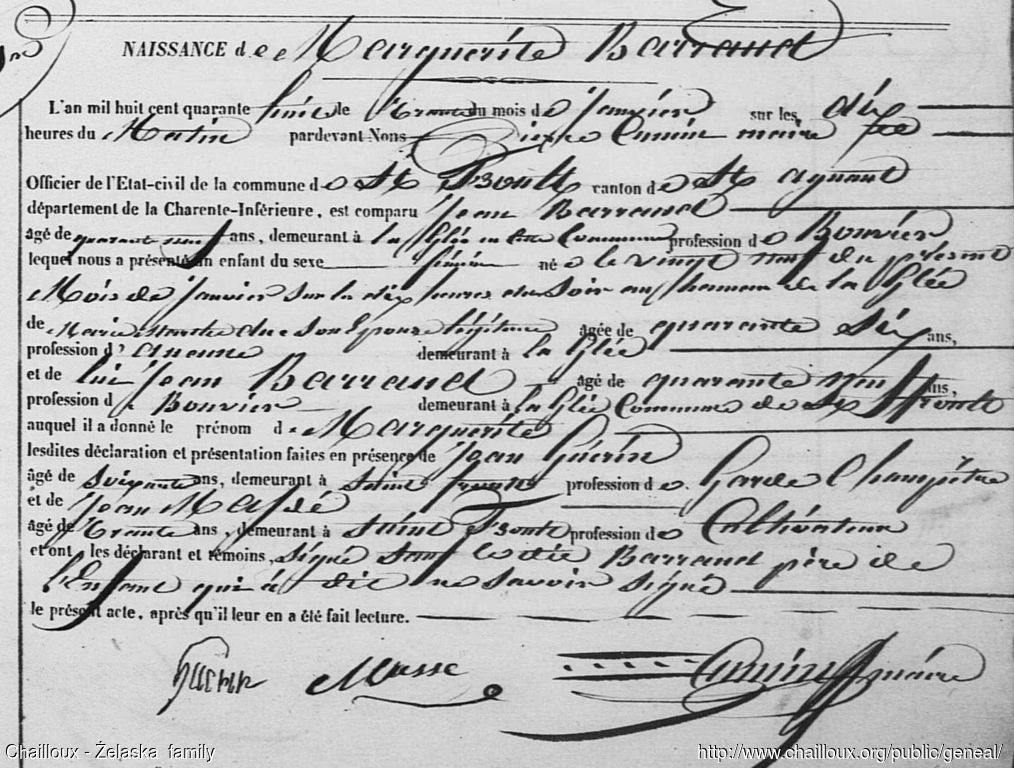 NAISSANCE de Marguerite Barraud
L'an mil huit cent quarante huit le trente du mois de Janvier sur les dix
heures du Matin pardevant Nous Pierre Cumin maire
Officier de l'Etat-civil de la commune de St Froult canton de St agnant
département de la Charente-Inférieure, est comparu Jean Barraud
âgé de quarante neuf ans, demeurant à la Glée en cette Commune profession de Bouvier
lequel nous a présenté un enfant du sexe féminin né e le vingt neuf du présent
Mois de Janvier sur les dix heures du Soir au hameau de la Glée
de Marie son Epouse légitime âgée de quarante Six ans,
profession d' Aucune demeurant à la Glée
et de lui Jean Barraud âgé de quarante neuf ans,
profession de Bouvier demeurant à la Glée Commune de St froult
auquel il a donné le prénom de Marguerite
lesdites déclaration et présentation faites en présence de Jean Guérin
âgé de Soixante ans, demeurant à Saint froult profession de Garde Champêtre
et de Jean Massé
âgé de trente ans, demeurant à Saint Froult profession de Cultivateur
et ont, les déclarant et témoins, signé sauf le dit Barraud père de
l'Enfant qui a dit ne savoir signé
le présent acte, après qu'il leur en a été fait lecture.
guerin Masse Cumin maire
Chailloux - Żelaska family http://www.chailloux.org/public/geneal/